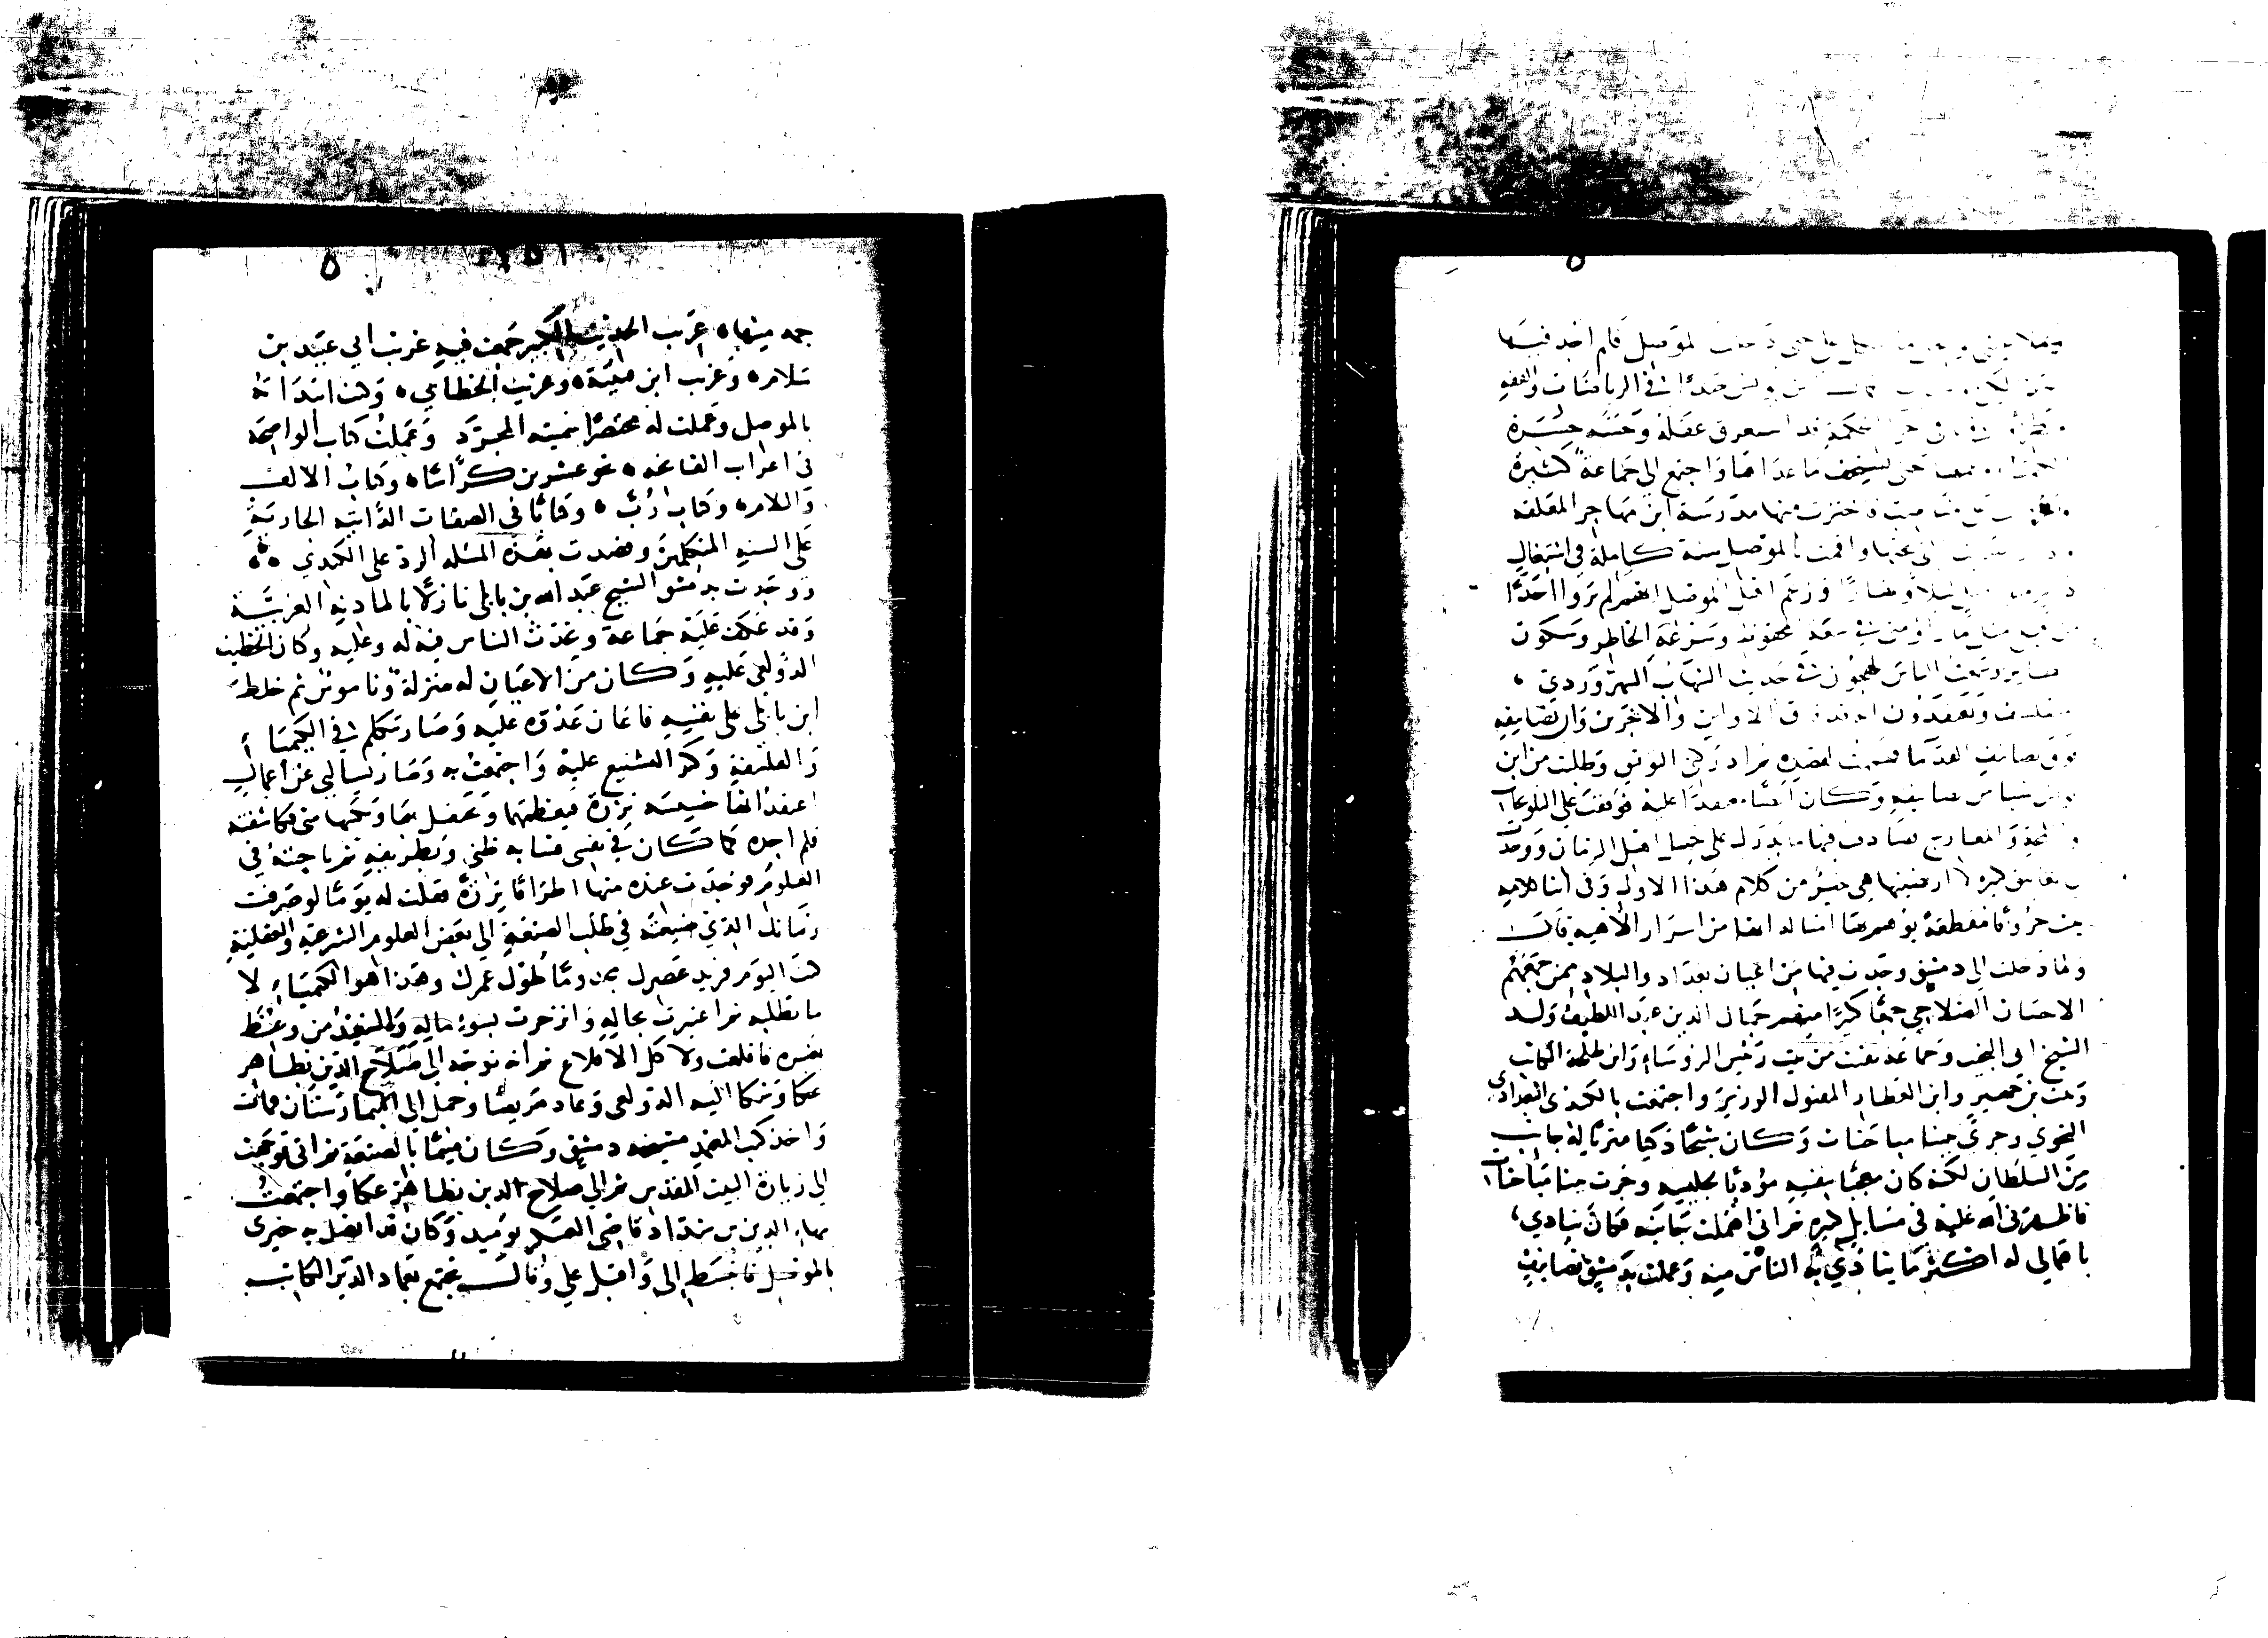 الموصل فلم اجد فيها
لكن يونس في الرياضيات والفقه
الحكمة قد استغرق عقله وحبه
حتى يستخف ما عداها واجتمع الي جماعة كثيرة
فاخترت منها مدرسة ابن مهاجر المعلقه
واقمت بالموصل سنة كاملة في اشتغال
ليلا ونهارا وزعم اهل الموصل انهم لم يروا احدا
من سعة المحفوظ وسرعة الخاطر وسكون
الطاير وسمعت الناس يهجون في حديث الشهاب السهروردي
ويعتقدون انه قد فاق الاولين والاخرين وان تصانيفه
فوق تصانيف القدما فهممت لقصده ثم ادركني التوفيق وطلبت من ابن
يونس شيا من تصانيفه وكان ايضا معتقدا عليه فوقعت على التلويحات
واللمحة والمعارج فصادفت فيها ما يدل على جهل اهل الزمان ووجدت
لي تعاليق كثيره لا ارتضيها هي خير من كلام هذا الاوك وفي اثنا كلامه
يثبت حروفا مقطعة يوهم بها امثاله انها من اسرار الالهيه قال
ولما دخلت الى دمشق وجدت فيها من اعيان بغداد والبلاد ممن جمعهم
الاحسان الصلاحي جمعا كثيرا منهم جمال الدين عبد اللطيف ولد
الشيخ ابي النجيب وجماعة بقيت من بيت رئيس الرؤساء وابن طلحة الكاتب
وبيت بن جهير وابن العطار المقتول الوزير واجتمعت بالكندي البغدادي
النحوي وجرى بيننا مباحثات وكان شيخا ذكيا مثريا له جانب
من السلطان لكنه كان معجبا بنفسه مؤذيا لجليسه وجرت بيننا مباحثات
فاظهرني الله عليه في مسايل كثيره ثم اني اهملت جانبه فكان يتاذى
باهمالي له اكثر مما يتاذى الناس منه وعملت بدمشق تصانيف
جمه منها ه غريب الحديث الكبير جمعت فيه غريب ابي عبيد بن
سلام ه وغريب ابن قتيبة ه وغريب الخطابي ه وكنت ابتدات به
بالموصل وعملت له مختصرا سميته المجرد وعملت كتاب الواضحة
في اعراب الفاتحه ه نحو عشرين كراسا ه وكتاب الالف
واللام ه وكتاب رب ه وكتابا في الصفات الذاتيه الجارية
على السنه المتكلمين وقصدت بهذه المسئله الرد على الكندي ه ه
ووجدت بدمشق الشيخ عبد الله بن بايلي نازلا بالماذنه الغربية
وقد عكف عليه جماعة وتحزب الناس فيه له وعليه وكان الخطيب
الدولعي عليه وكان من الاعيان له منزلة وناموس ثم خلط
ابن بايلي على نفسه فاعان عدوه عليه وصار يتكلم في الكيميا
والفلسفة وكثر التشنيع عليه واجتمعت به وصار يسالني عن اعمال
اعتقد انها خسيسه نزرة فيعظمها ويحتفل بها ويكتبها مني فكاشفته
فلم اجده كما كان في نفسي فساء به ظني وبطريقه ثم باحثته في
العلوم فوجدت عنده منها اطرافا نزرة فقلت له يوما لو صرفت
زمانك الذي ضيعته في طلب الصنعة الى بعض العلوم الشرعية والعقلية
كنت اليوم فريد عصرك مخدوما طول عمرك وهذا هو الكيمياء لا
ما تطلبه ثم اعتبرت بحاله وانزجرت بسوء ماله والسعيد من وعظ
بغيره فاقلعت ولا كل الاقلاع ثم انه توجه الى صلاح الدين بظاهر
عكا وشكا اليه الدولعي وعاد مريضا وحمل الى البيمارستان فمات
واخذ كتبه المعتمد شحنه دمشق وكان متيما بالصنعة ثم اني توجهت
الى زيارة البيت المقدس ثم الى صلاح الدين بظاهر عكا واجتمعت
ببهاء الدين بن شداد قاضي العسكر يوميذ وكان قد اتصل به خبري
بالموصل فانبسط الي واقبل علي وقال نجتمع بعماد الدين الكاتب